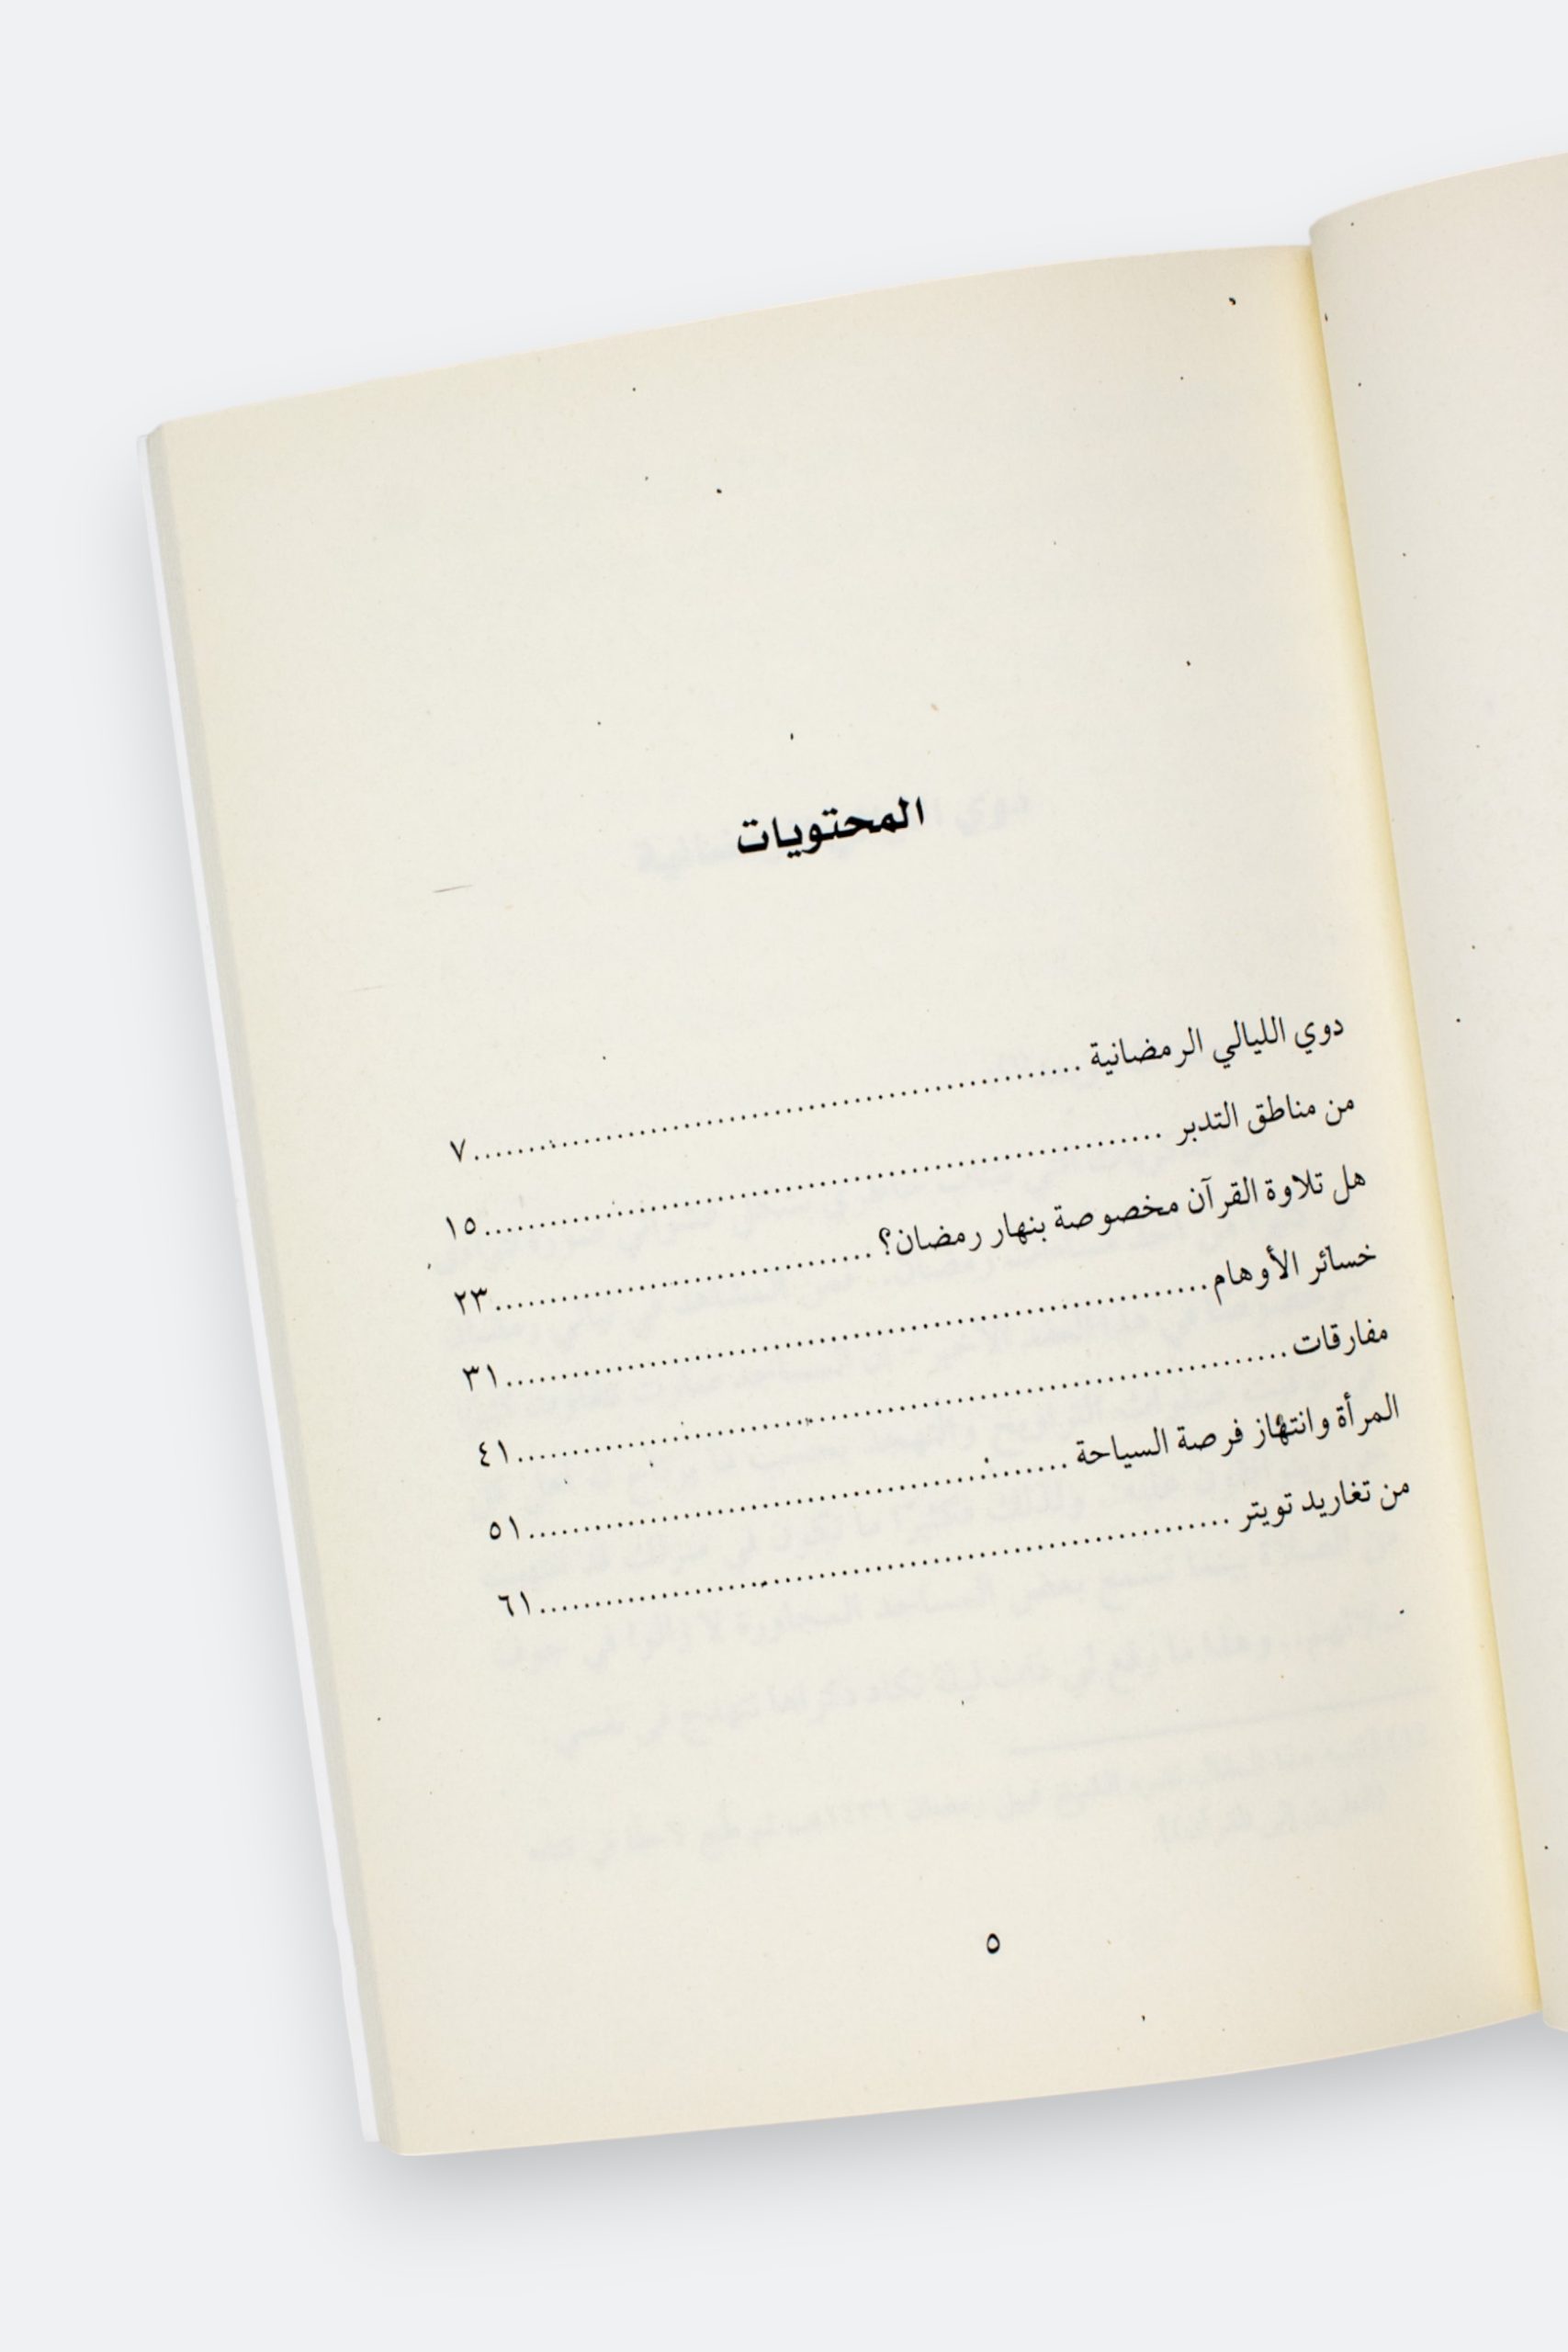 المحتويات
دوي الليالي الرمضانية ........................................ ٧
من مناطق التدبر ........................................ ١٥
هل تلاوة القرآن مخصوصة بنهار رمضان؟ ........................................ ٢٣
خسائر الأوهام ........................................ ٣١
مفارقات ........................................ ٤١
المرأة وانتهاز فرصة السياحة ........................................ ٥١
من تغاريد تويتر ........................................ ٦١
٥